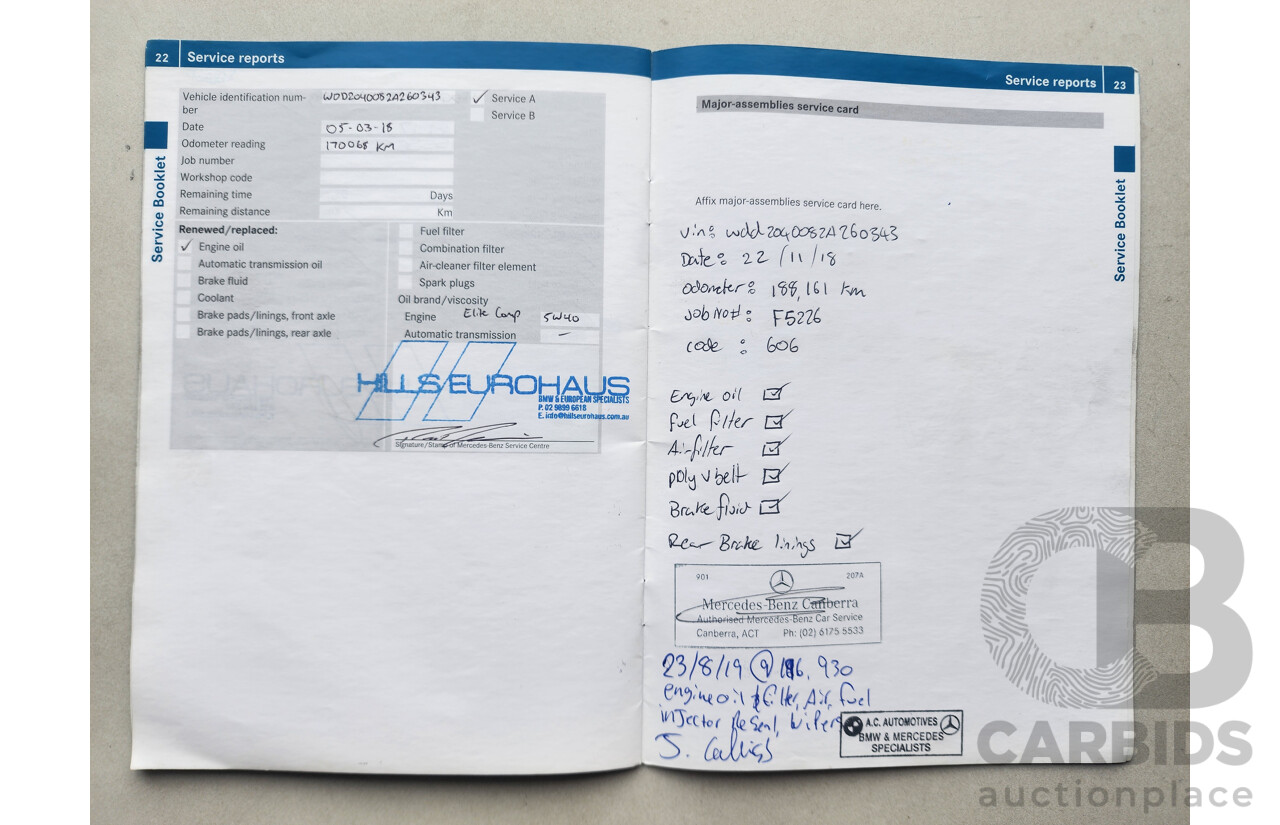 22 Service reports
Vehicle identification num-
ber
WDD2040082A260343
✓ Service A
Service B
Date 05-03-18
Odometer reading 170068 KM
Job number
Workshop code
Remaining time Days
Remaining distance Km
Service Booklet
Renewed/replaced:
✓ Engine oil
Automatic transmission oil
Brake fluid
Coolant
Brake pads/linings, front axle
Brake pads/linings, rear axle
Fuel filter
Combination filter
Air-cleaner filter element
Spark plugs
Oil brand/viscosity
Engine Elite Comp 5W40
Automatic transmission —
HILLS EUROHAUS
BMW & EUROPEAN SPECIALISTS
P. 02 9899 6618
E. info@hillseurohaus.com.au
Signature/Stamp of Mercedes-Benz Service Centre
Service reports 23
Major-assemblies service card
Service Booklet
Affix major-assemblies service card here.
Vin: wdd2040082A260343
Date: 22/11/18
odometer: 188,161 km
Job No#: F5226
code : 606
Engine oil ☑
fuel filter ☑
Airfilter ☑
poly v belt ☑
Brake fluid ☑
Rear Brake linings ☑
901 207A
Mercedes-Benz Canberra
Authorised Mercedes-Benz Car Service
Canberra, ACT Ph: (02) 6175 5533
23/8/19 @ 930
engine oil & filter, Air, fuel
injector Reseal, Wipers
A.C. AUTOMOTIVES
BMW & MERCEDES
SPECIALISTS
J.
CB
CARBIDS
auctionplace